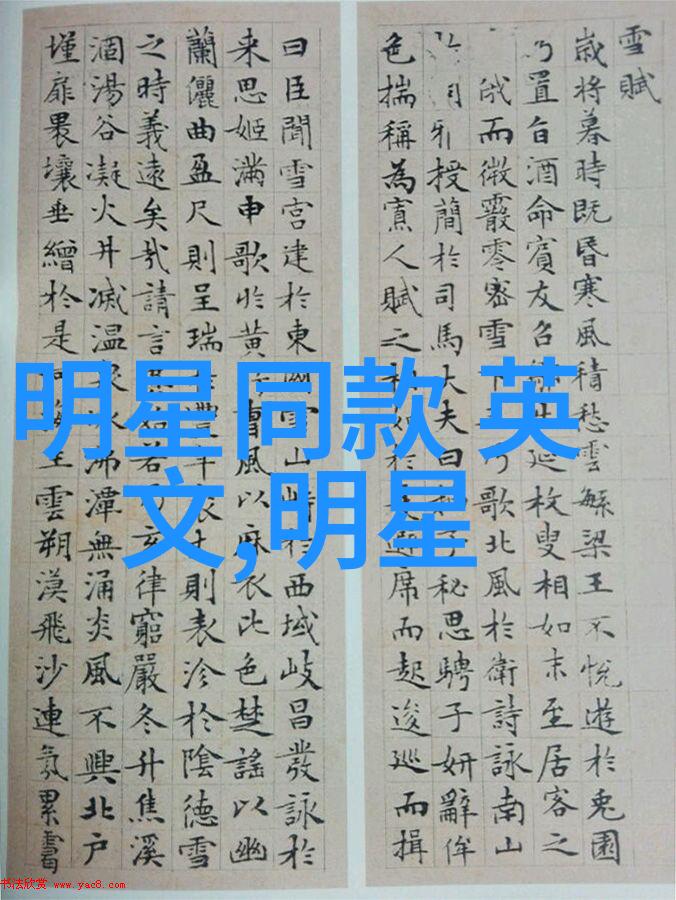 雪賦
歲将暮時既昏寒風積愁雲繁梁王不悅遊於兎園
乃置旨酒命賓友召延枚叟相如末至居客之
俄而微霰零密雪下乃歌北風於衛詩詠南山
雅授簡於司馬大夫曰子秘思騁子妍辭侔
色揣稱為寡人賦之相如於避席而起逡巡而揖
曰臣聞雪宮建於東國雪山峙於西域岐昌發詠於
来思姬滿申歌於黄曹風以麻衣比色楚謠以幽
蘭儷曲盈尺則呈瑞於豐年袤丈則表沴於陰德雪
之時義遠矣哉請言其始若乃玄律窮嚴冬升焦溪
涸湯谷凝火井滅温泉冰沸潭無涌炎風不興北户
墐扉裸壤垂繒於是河海生雲朔漠飛沙連氛累靄
明星同款 英
文,明星
书法欣赏 www.yac8.com